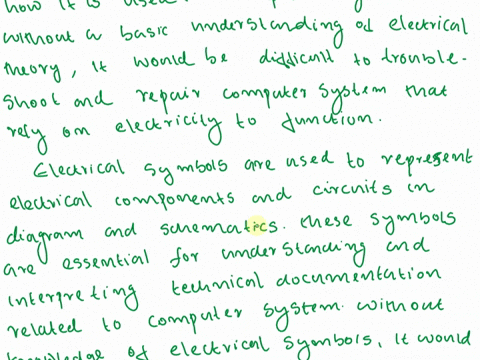 how it is used
without a basic understanding of electrical
theory, it would be difficult to trouble-
shoot and repair computer system that
rely on electricity to function.
Electrical symbols are used to represent
electrical components and circuits in
diagram and schematics. these symbols
are essential for understanding and
interpreting technical documentation
related to computer system. without
knowledge of electrical symbols, it would